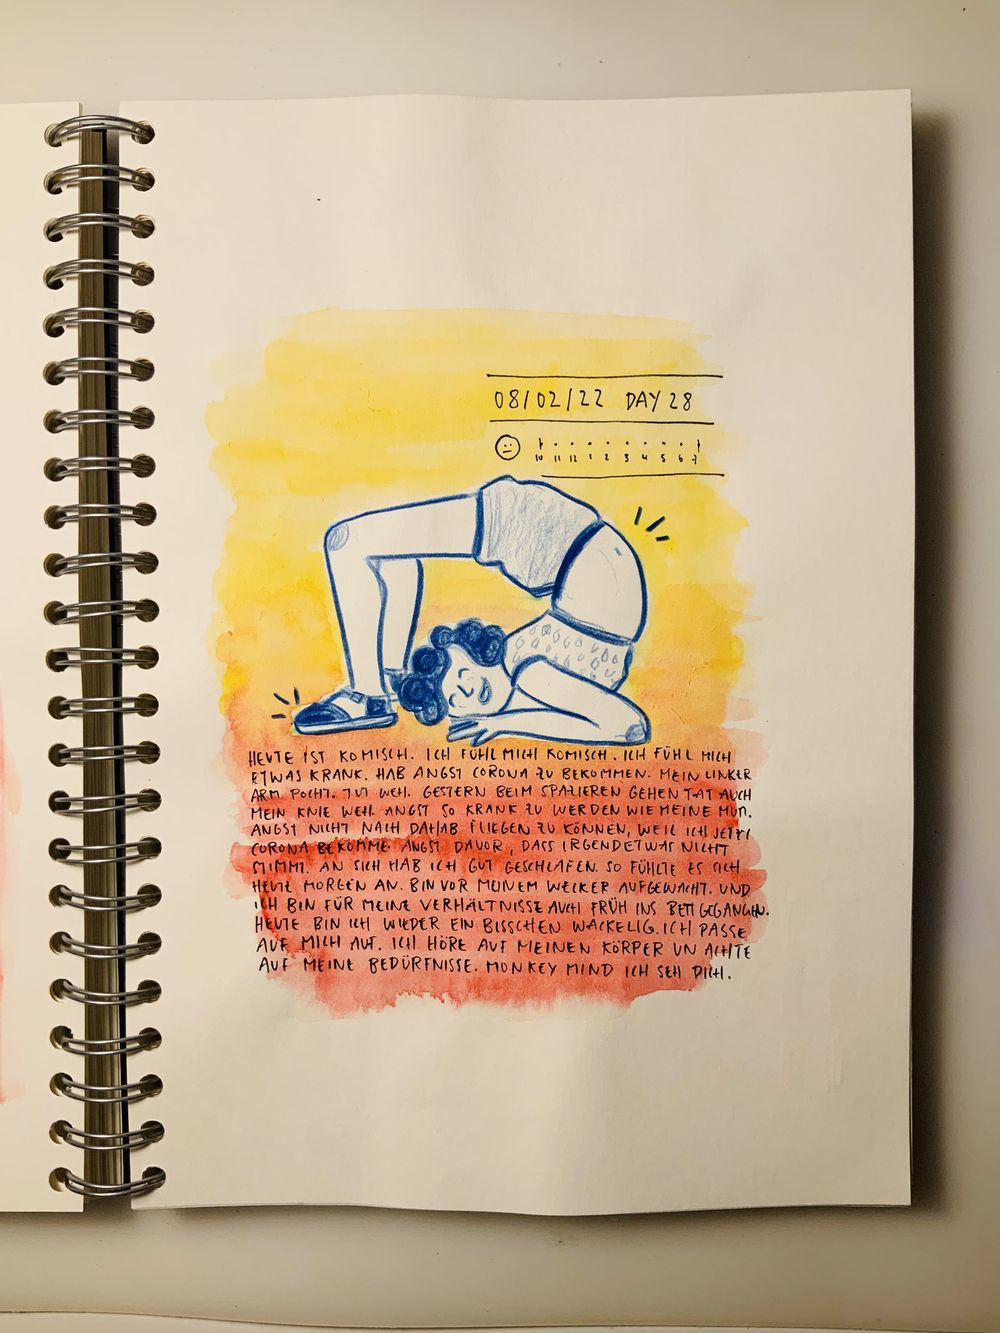 08/02/22 DAY 28
10 11 12 1 2 3 4 5 6 7
HEUTE IST KOMISCH. ICH FÜHL MICH KOMISCH. ICH FÜHL MICH
ETWAS KRANK. HAB ANGST CORONA ZU BEKOMMEN. MEIN LINKER
ARM POCHT. TUT WEH. GESTERN BEIM SPAZIEREN GEHEN TAT AUCH
MEIN KNIE WEH. ANGST SO KRANK ZU WERDEN WIE MEINE MUM.
ANGST NICHT NACH DAHAB FLIEGEN ZU KÖNNEN, WEIL ICH JETZT
CORONA BEKOMME. ANGST DAVOR, DASS IRGENDETWAS NICHT
STIMMT. AN SICH HAB ICH GUT GESCHLAFEN. SO FÜHLTE ES SICH
HEUTE MORGEN AN. BIN VOR MEINEM WECKER AUFGEWACHT. UND
ICH BIN FÜR MEINE VERHÄLTNISSE AUCH FRÜH INS BETT GEGANGEN.
HEUTE BIN ICH WIEDER EIN BISSCHEN WACKELIG. ICH PASSE
AUF MICH AUF. ICH HÖRE AUF MEINEN KÖRPER UN ACHTE
AUF MEINE BEDÜRFNISSE. MONKEY MIND ICH SEH DICH.